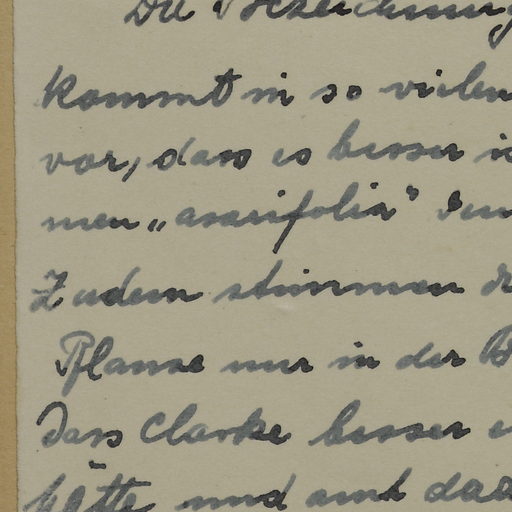 Die Bezeichnung
kommt in so vielen
vor, dass es besser is
men „asarifolia"
Zudem stimmen d
Pflanze nur in der B
Dass Clarke besser
hätte und amt das